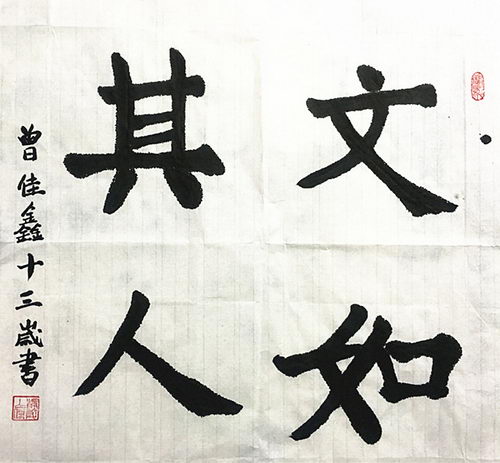 文如
其人
曾佳鑫十三歲書